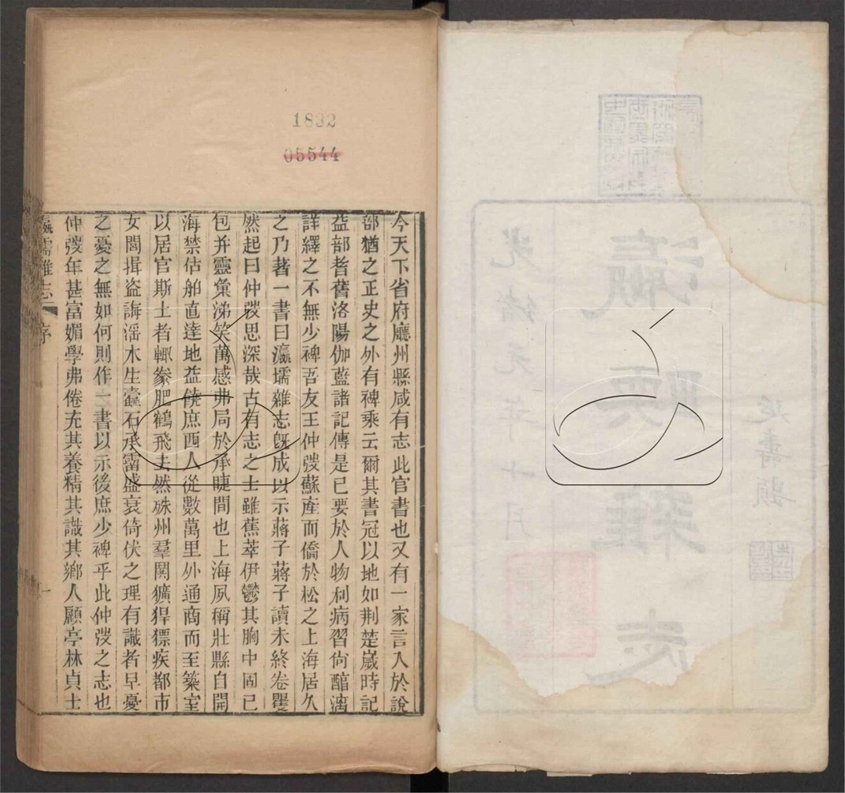 1832
05544
今天下省府廳州縣咸有志此官書也又有一家言入於說
部猶之正史之外有稗乘云爾其書冠以地如荆楚歲時記
益部耆舊洛陽伽藍諸記傳是已要於人物利病習尙醕漓
詳繹之不無少裨吾友王仲弢蘇產而僑於松之上海居久
之乃著一書曰瀛壖雜志旣成以示蔣子蔣子讀未終卷瞿
然起曰仲弢思深哉古有志之士雖蕉萃伊鬱其胸中固已
包幷靈彙涕笑萬感弗局於承睫間也上海夙稱壯縣自開
海禁估舶直達地益俠庶西人從數萬里外通商而至築室
以居官斯土者輒豢肥鶴飛去然硃州羣閧獷猂獷疾鄱市
女閭揖盜誨滛木生蠧石承霤盛衰倚伏之理有識者早憂
之憂之無如何則作一書以示後庶少裨乎此仲弢之志也
仲弢年甚富媚學弗倦充其養精其識其鄉人顧亭林貞士
瀛壖雜志
序
一
光緒元
瀛壖雜志